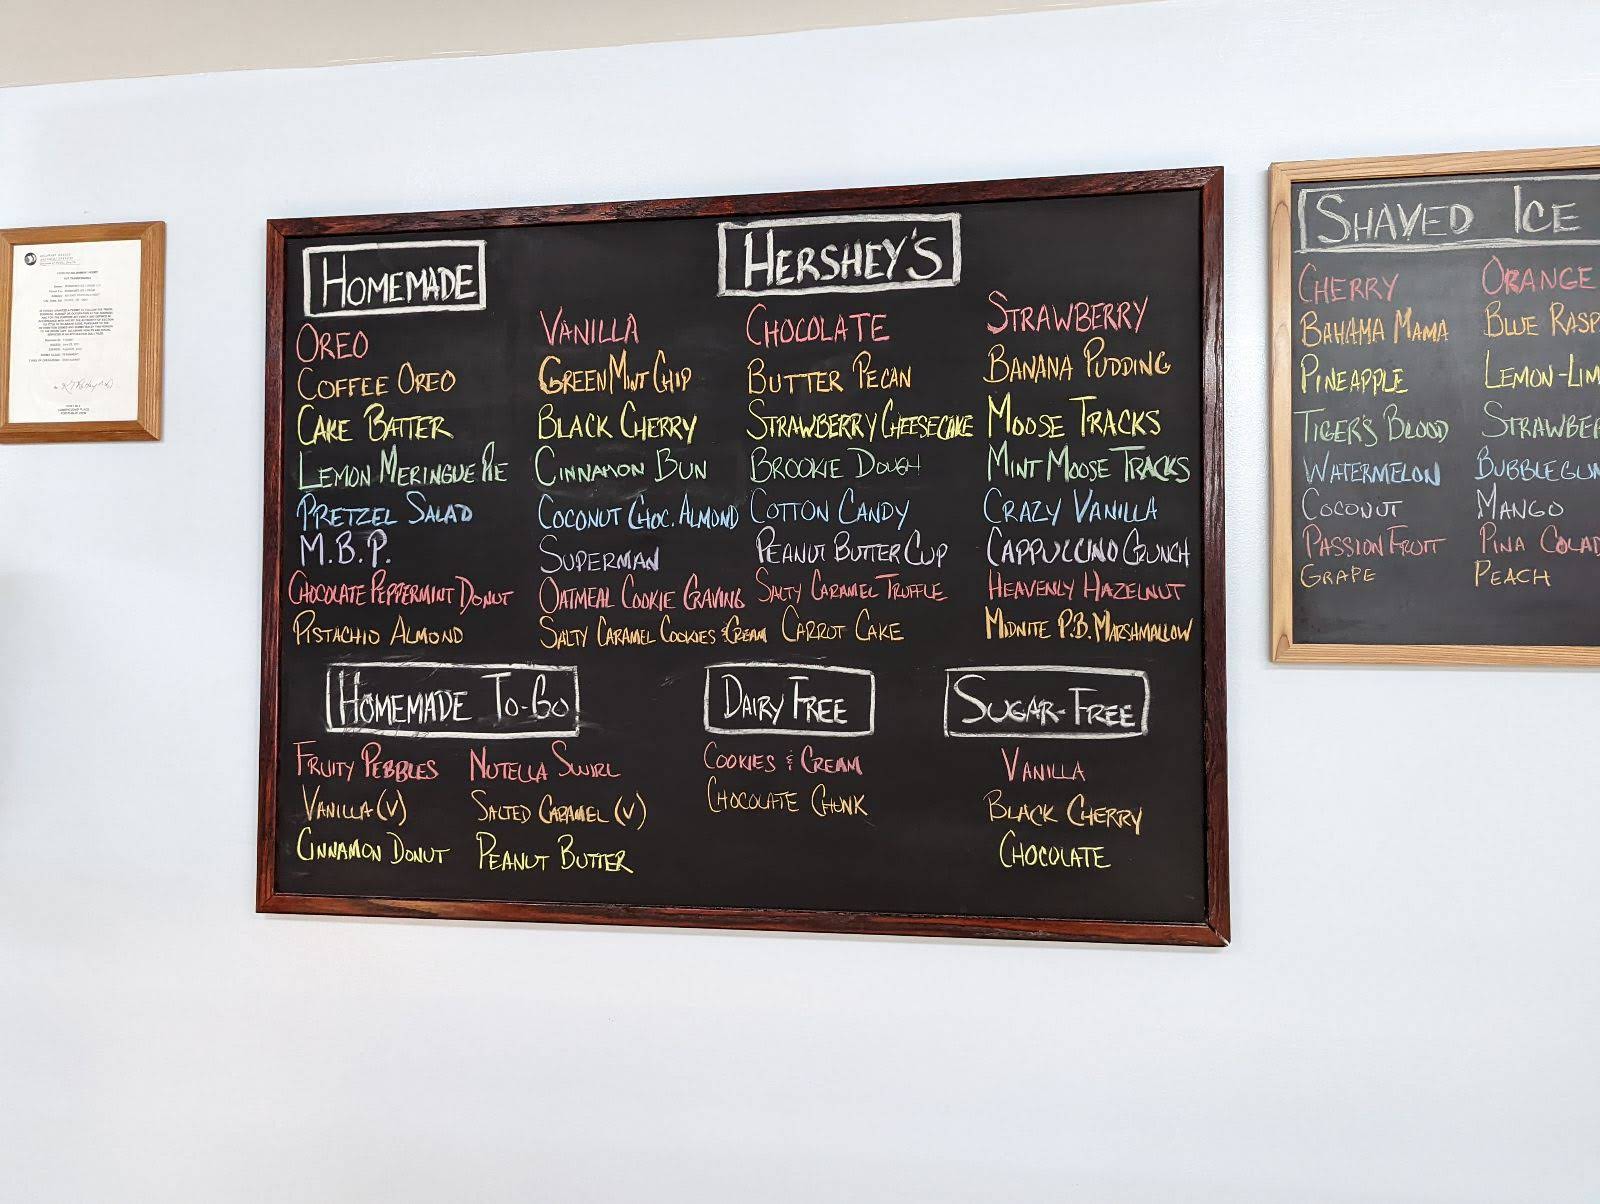 HOMEMADE
OREO
COFFEE OREO
CAKE BATTER
LEMON MERINGUE PIE
PRETZEL SALAD
M.B.P.
CHOCOLATE PEPPERMINT DONUT
PISTACHIO ALMOND
HERSHEY'S
VANILLA
GREEN MINT CHIP
BLACK CHERRY
CINNAMON BUN
COCONUT CHOC. ALMOND
SUPERMAN
OATMEAL COOKIE CRAVING
SALTY CARAMEL COOKIES & CREAM
CHOCOLATE
BUTTER PECAN
STRAWBERRY CHEESECAKE
BROOKIE DOUGH
COTTON CANDY
PEANUT BUTTER CUP
SALTY CARAMEL TRUFFLE
CARROT CAKE
STRAWBERRY
BANANA PUDDING
MOOSE TRACKS
MINT MOOSE TRACKS
CRAZY VANILLA
CAPPUCCINO CRUNCH
HEAVENLY HAZELNUT
MIDNITE P.B. MARSHMALLOW
HOMEMADE TO-GO
FRUITY PEBBLES
VANILLA (V)
CINNAMON DONUT
NUTELLA SWIRL
SALTED CARAMEL (V)
PEANUT BUTTER
DAIRY FREE
COOKIES & CREAM
CHOCOLATE CHUNK
SUGAR-FREE
VANILLA
BLACK CHERRY
CHOCOLATE
SHAVED ICE
CHERRY
BAHAMA MAMA
PINEAPPLE
TIGER'S BLOOD
WATERMELON
COCONUT
PASSION FRUIT
GRAPE
ORANGE
BLUE RASP
LEMON-LIM
STRAWBER
BUBBLEGUM
MANGO
PINA COLAD
PEACH